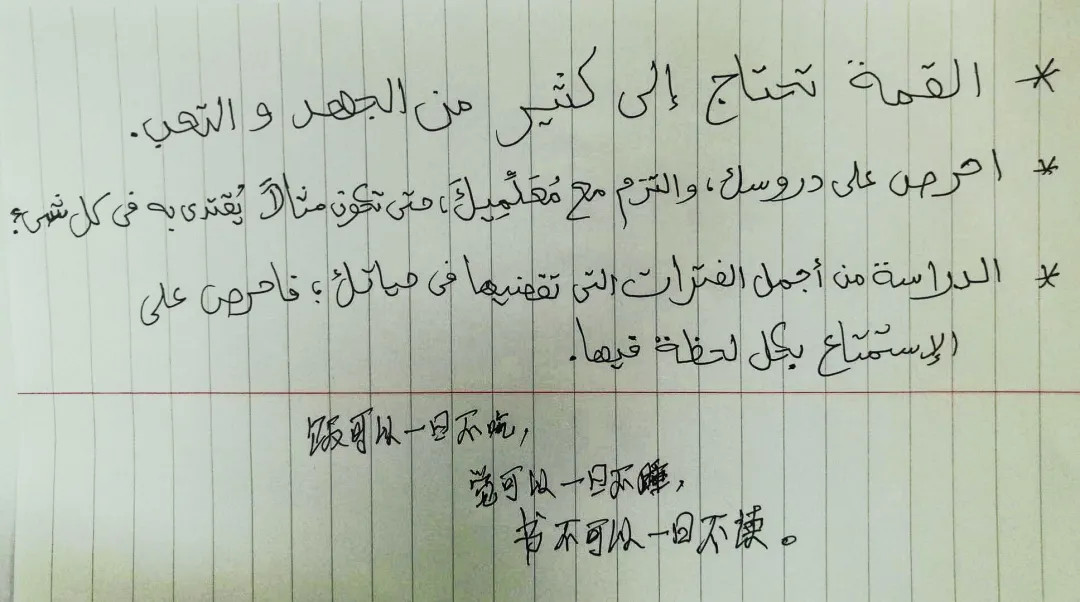 * القمة تحتاج إلى كثير من الجهد والتعب.
* احرص على دروسك، والتزم مع مُعَلِّمِيكَ، حتى تكون مثالاً يُقتدى به في كل شيء.
* الدراسة من أجمل الفترات التي تقضيها في حياتك؛ فاحرص على
الإستمتاع بكل لحظة فيها.
饭可以一日不吃，
觉可以一日不睡，
书不可以一日不读。